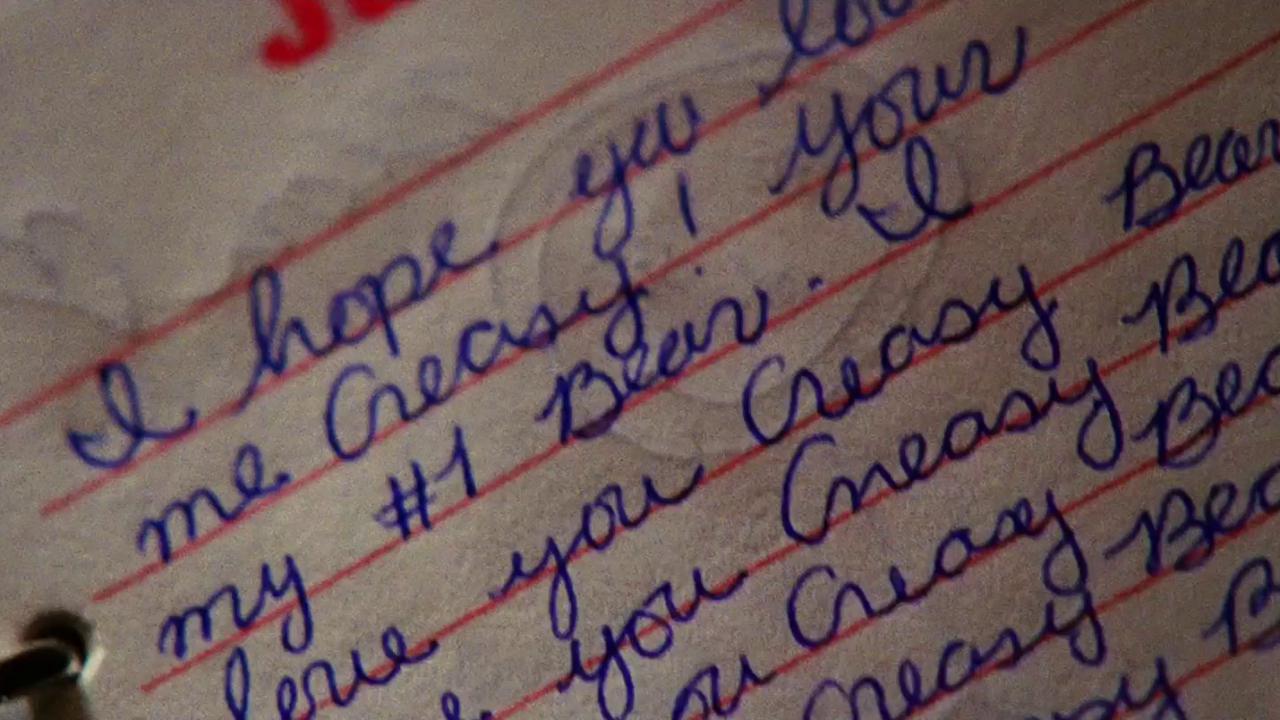 I hope you
me Creasy! Your
my #1 Bear. I
love you Creasy Bear
you Creasy Bea
ou Creasy Bea
Creasy Bea
sy B